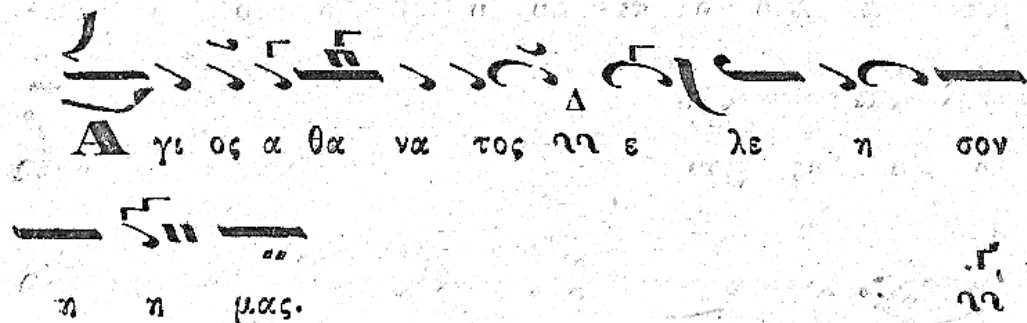 Α γι ος α θα να τος Δ ε λε η σον
η η μας.